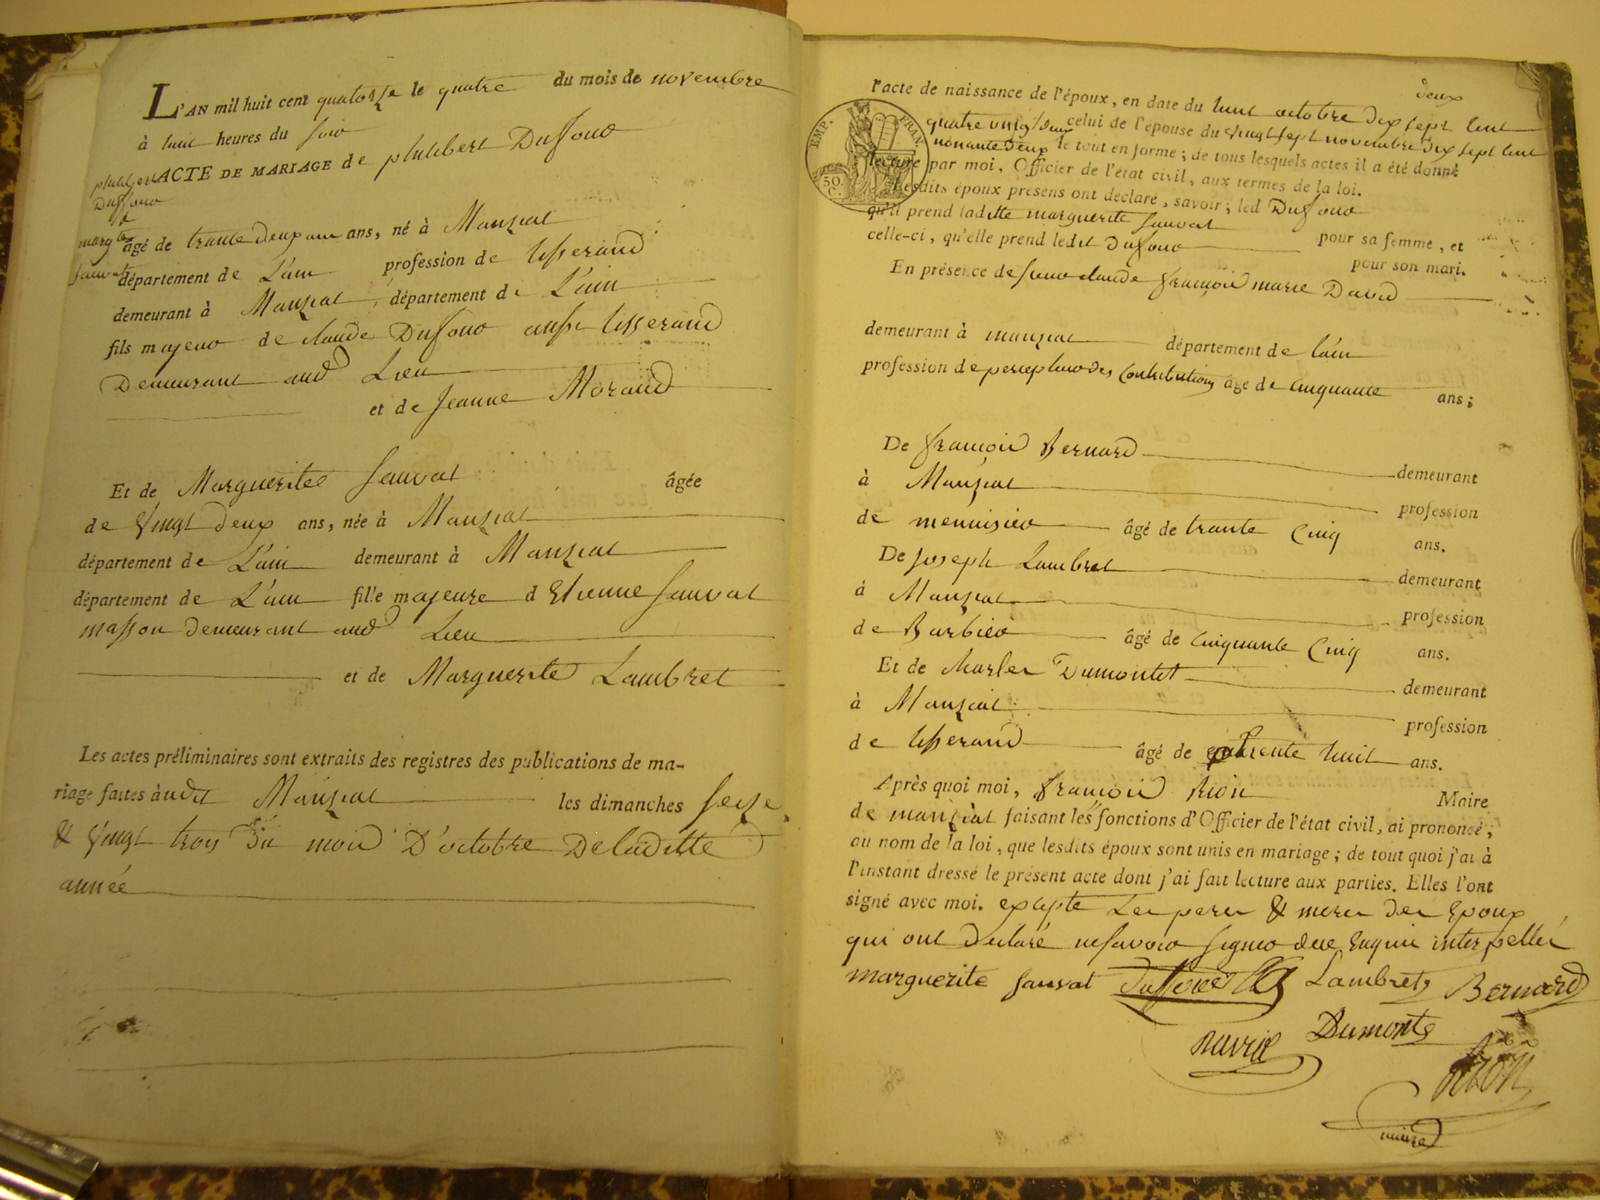 L'AN mil huit cent quatorze le quatre du mois de novembre
à huit heures du soir
ACTE DE MARIAGE de philibert Duffour
philibert
Duffour
&
margte
Sauvat
âgé de trante deux ans ans, né à Manziat
département de L'ain profession de tisserand
demeurant à Manziat, département de L'ain
fils majeur de claude Duffour aussi tisserand
Demeurant aud Lieu
et de Jeanne Morand
Et de Marguerite Sauvat âgée
de Vingt deux ans, née à Manziat
département de L'ain demeurant à Manziat
département de L'ain fille majeure d Etienne Sauvat
masson demeurant aud Lieu
et de Marguerite Lambret
Les actes préliminaires sont extraits des registres des publications de ma-
riage faites àudit Manziat les dimanches seize
& Vingt trois du mois D'octobre De laditte
année
EMP. FRAN.
50 C.
deux
l'acte de naissance de l'époux, en date du huit octobre dix sept cent
quatre vingt celui de l'épouse du vingt sept novembre dix sept cent
nonante deux le tout en forme; de tous lesquels actes il a été donné
lecture par moi, Officier de l'état civil, aux termes de la loi.
Lesdits époux présens ont déclaré, savoir; led Duffour
qu'il prend laditte marguerite Sauvat pour sa femme, et
celle-ci, qu'elle prend ledit duffour pour son mari.
En présence de claude françois marie David
demeurant à manziat département de lain
profession de percepteur des Contributions âgé de cinquante ans;
De françois Bernard demeurant
à Manziat profession
de menuisier âgé de trante Cinq ans.
De Joseph Lambret demeurant
à Manziat profession
de Barbier âgé de cinquante Cinq ans.
Et de charles Dumontet demeurant
à Manziat profession
de tisserand âgé de trente huit ans.
Après quoi moi, françois Rion Maire
de manziat faisant les fonctions d'Officier de l'état civil, ai prononcé,
au nom de la loi, que lesdits époux sont unis en mariage; de tout quoi j'ai à
l'instant dressé le présent acte dont j'ai fait lecture aux parties. Elles l'ont
signé avec moi. excepté Les peres & meres des Epoux
qui ont declaré ne savoir signer de ce Enquis interpellés
marguerite sauvat Duffour Lambret Bernard
David Dumonte Rion
maire